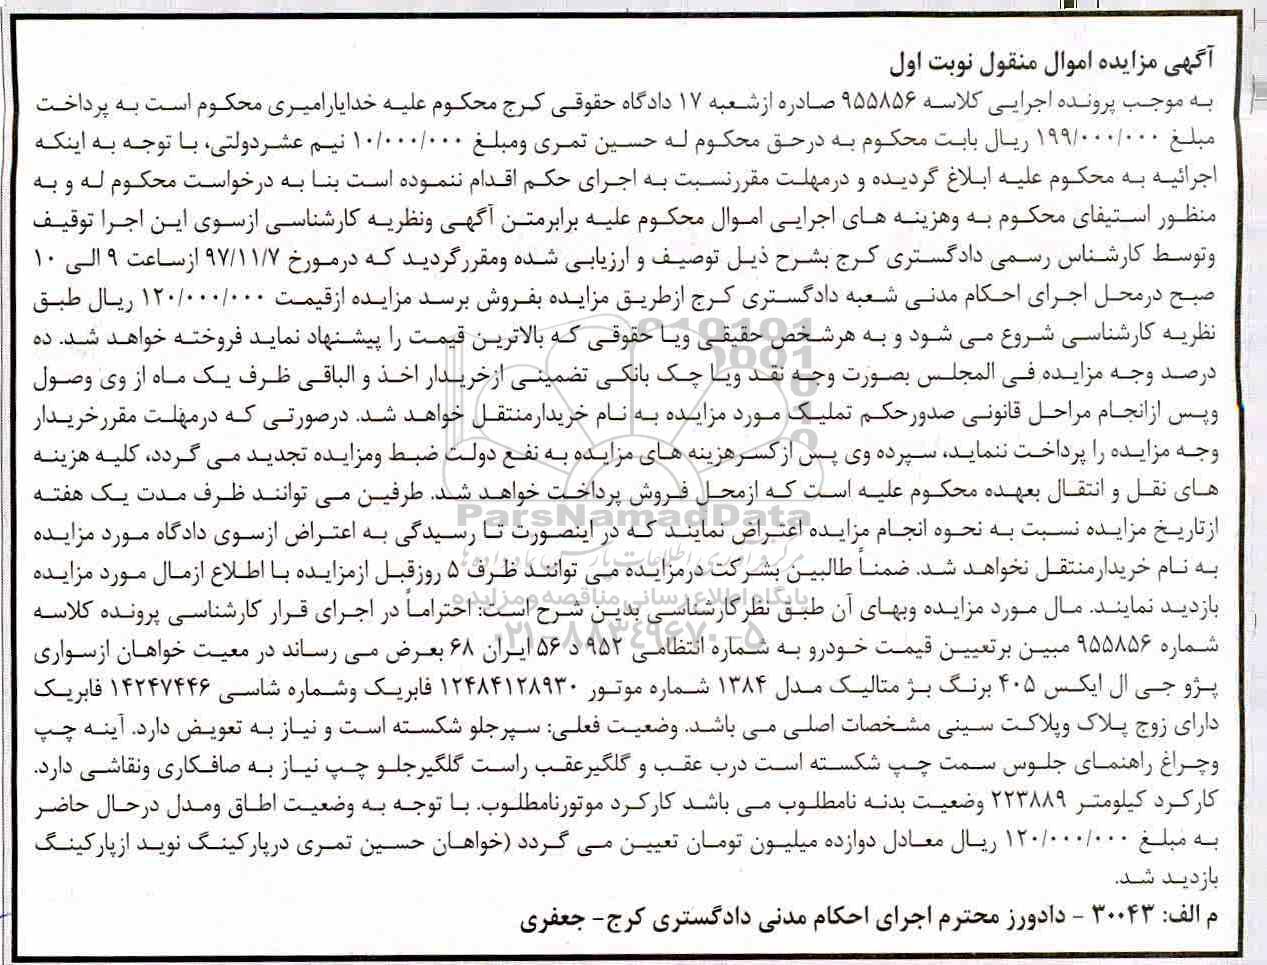 آگهی مزایده اموال منقول نوبت اول
به موجب پرونده اجرایی کلاسه ۹۵۵۸۵۶ صادره ازشعبه ۱۷ دادگاه حقوقی کرج محکوم علیه خدایارامیری محکوم است به پرداخت
مبلغ ۱۹۹/۰۰۰/۰۰۰ ریال بابت محکوم به درحق محکوم له حسین تمری ومبلغ ۱۰/۰۰۰/۰۰۰ نیم عشردولتی، با توجه به اینکه
اجرائیه به محکوم علیه ابلاغ گردیده و درمهلت مقررنسبت به اجرای حکم اقدام ننموده است بنا به درخواست محکوم له و به
منظور استیفای محکوم به وهزینه های اجرایی اموال محکوم علیه برابرمتن آگهی ونظریه کارشناسی ازسوی این اجرا توقیف
وتوسط کارشناس رسمی دادگستری کرج بشرح ذیل توصیف و ارزیابی شده ومقررگردید که درمورخ ۹۷/۱۱/۷ ازساعت ۹ الی ۱۰
صبح درمحل اجرای احکام مدنی شعبه دادگستری کرج ازطریق مزایده بفروش برسد مزایده ازقیمت ۱۲۰/۰۰۰/۰۰۰ ریال طبق
نظریه کارشناسی شروع می شود و به هرشخص حقیقی ویا حقوقی که بالاترین قیمت را پیشنهاد نماید فروخته خواهد شد. ده
درصد وجه مزایده فی المجلس بصورت وجه نقد ویا چک بانکی تضمینی ازخریدار اخذ و الباقی ظرف یک ماه از وی وصول
وپس ازانجام مراحل قانونی صدورحکم تملیک مورد مزایده به نام خریدارمنتقل خواهد شد. درصورتی که درمهلت مقررخریدار
وجه مزایده را پرداخت ننماید، سپرده وی پس ازکسرهزینه های مزایده به نفع دولت ضبط ومزایده تجدید می گردد، کلیه هزینه
های نقل و انتقال بعهده محکوم علیه است که ازمحل فروش پرداخت خواهد شد. طرفین می توانند ظرف مدت یک هفته
ازتاریخ مزایده نسبت به نحوه انجام مزایده اعتراض نمایند که در اینصورت تا رسیدگی به اعتراض ازسوی دادگاه مورد مزایده
به نام خریدارمنتقل نخواهد شد. ضمناً طالبین بشرکت درمزایده می توانند ظرف ۵ روزقبل ازمزایده با اطلاع ازمال مورد مزایده
بازدید نمایند. مال مورد مزایده وبهای آن طبق نظرکارشناسی بدین شرح است: احتراماً در اجرای قرار کارشناسی پرونده کلاسه
شماره ۹۵۵۸۵۶ مبین برتعیین قیمت خودرو به شماره انتظامی ۹۵۲ د ۵۶ ایران ۶۸ بعرض می رساند در معیت خواهان ازسواری
پژو جی ال ایکس ۴۰۵ برنگ بژ متالیک مدل ۱۳۸۴ شماره موتور ۱۲۴۸۴۱۲۸۹۳۰ فابریک وشماره شاسی ۱۴۲۴۷۴۴۶ فابریک
دارای زوج پلاک وپلاکت سینی مشخصات اصلی می باشد. وضعیت فعلی: سپرجلو شکسته است و نیاز به تعویض دارد. آینه چپ
وچراغ راهنمای جلوس سمت چپ شکسته است درب عقب و گلگیرعقب راست گلگیرجلو چپ نیاز به صافکاری ونقاشی دارد.
کارکرد کیلومتر ۲۲۳۸۸۹ وضعیت بدنه نامطلوب می باشد کارکرد موتورنامطلوب. با توجه به وضعیت اطاق ومدل درحال حاضر
به مبلغ ۱۲۰/۰۰۰/۰۰۰ ریال معادل دوازده میلیون تومان تعیین می گردد (خواهان حسین تمری درپارکینگ نوید ازپارکینگ
بازدید شد.
م الف: ۳۰۰۴۳ - دادورز محترم اجرای احکام مدنی دادگستری کرج- جعفری
ParsNamadData
پایگاه اطلاع رسانی مناقصه و مزایده
۰۲۱-۸۸۳۴۹۶۷۰-۵